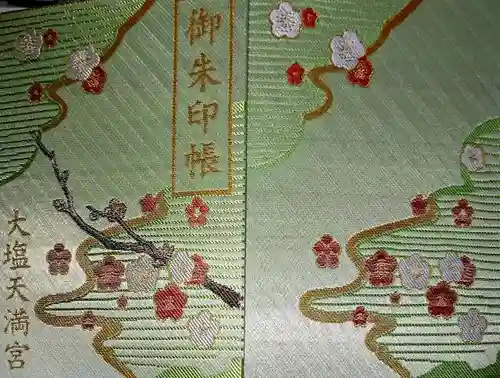 御朱印帳
大塩天満宮